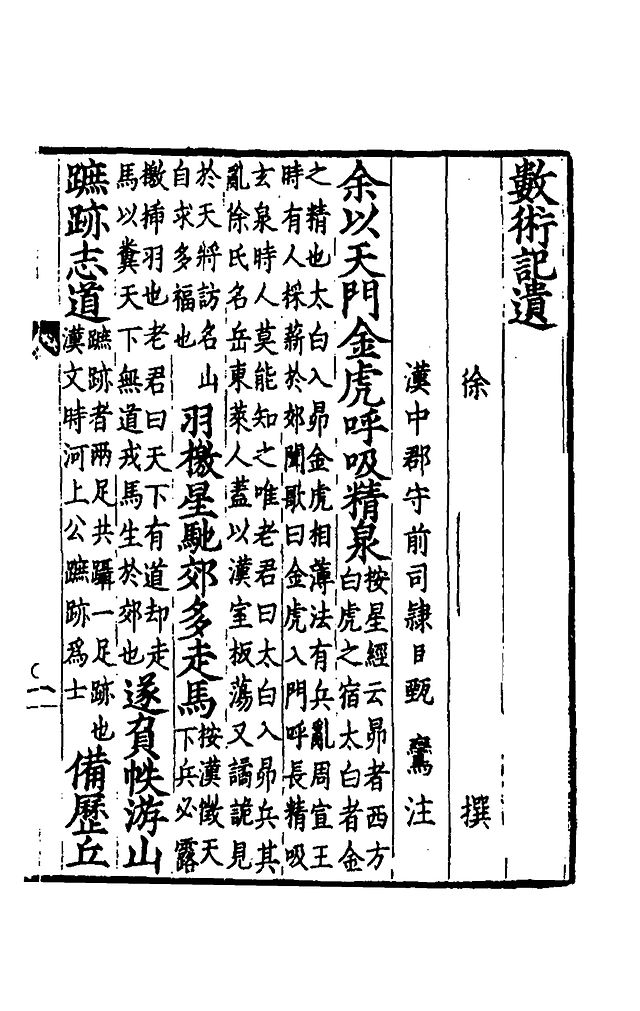 數術記遺
徐　撰
漢中郡守前司隸臣甄鸞注
余以天門金虎呼吸精泉
按星經云昴者西方
白虎之宿太白者金
之精也太白入昴金虎相薄法有兵亂周宣王
時有人採薪於郊聞歌曰金虎入門呼長精吸
玄泉時人莫能知之唯老君曰太白入昴兵其
亂徐氏名岳東萊人蓋以漢室板蕩又譎詭見
於天將訪名山
自求多福也
羽檄星馳郊多走馬
按漢徵天
下兵必露
檄揷羽也老君曰天下有道却走
馬以糞天下無道戎馬生於郊也
遂負帙游山
蹠跡志道
蹠跡者兩足共躡一足跡也
漢文時河上公蹠跡爲士
備歷丘